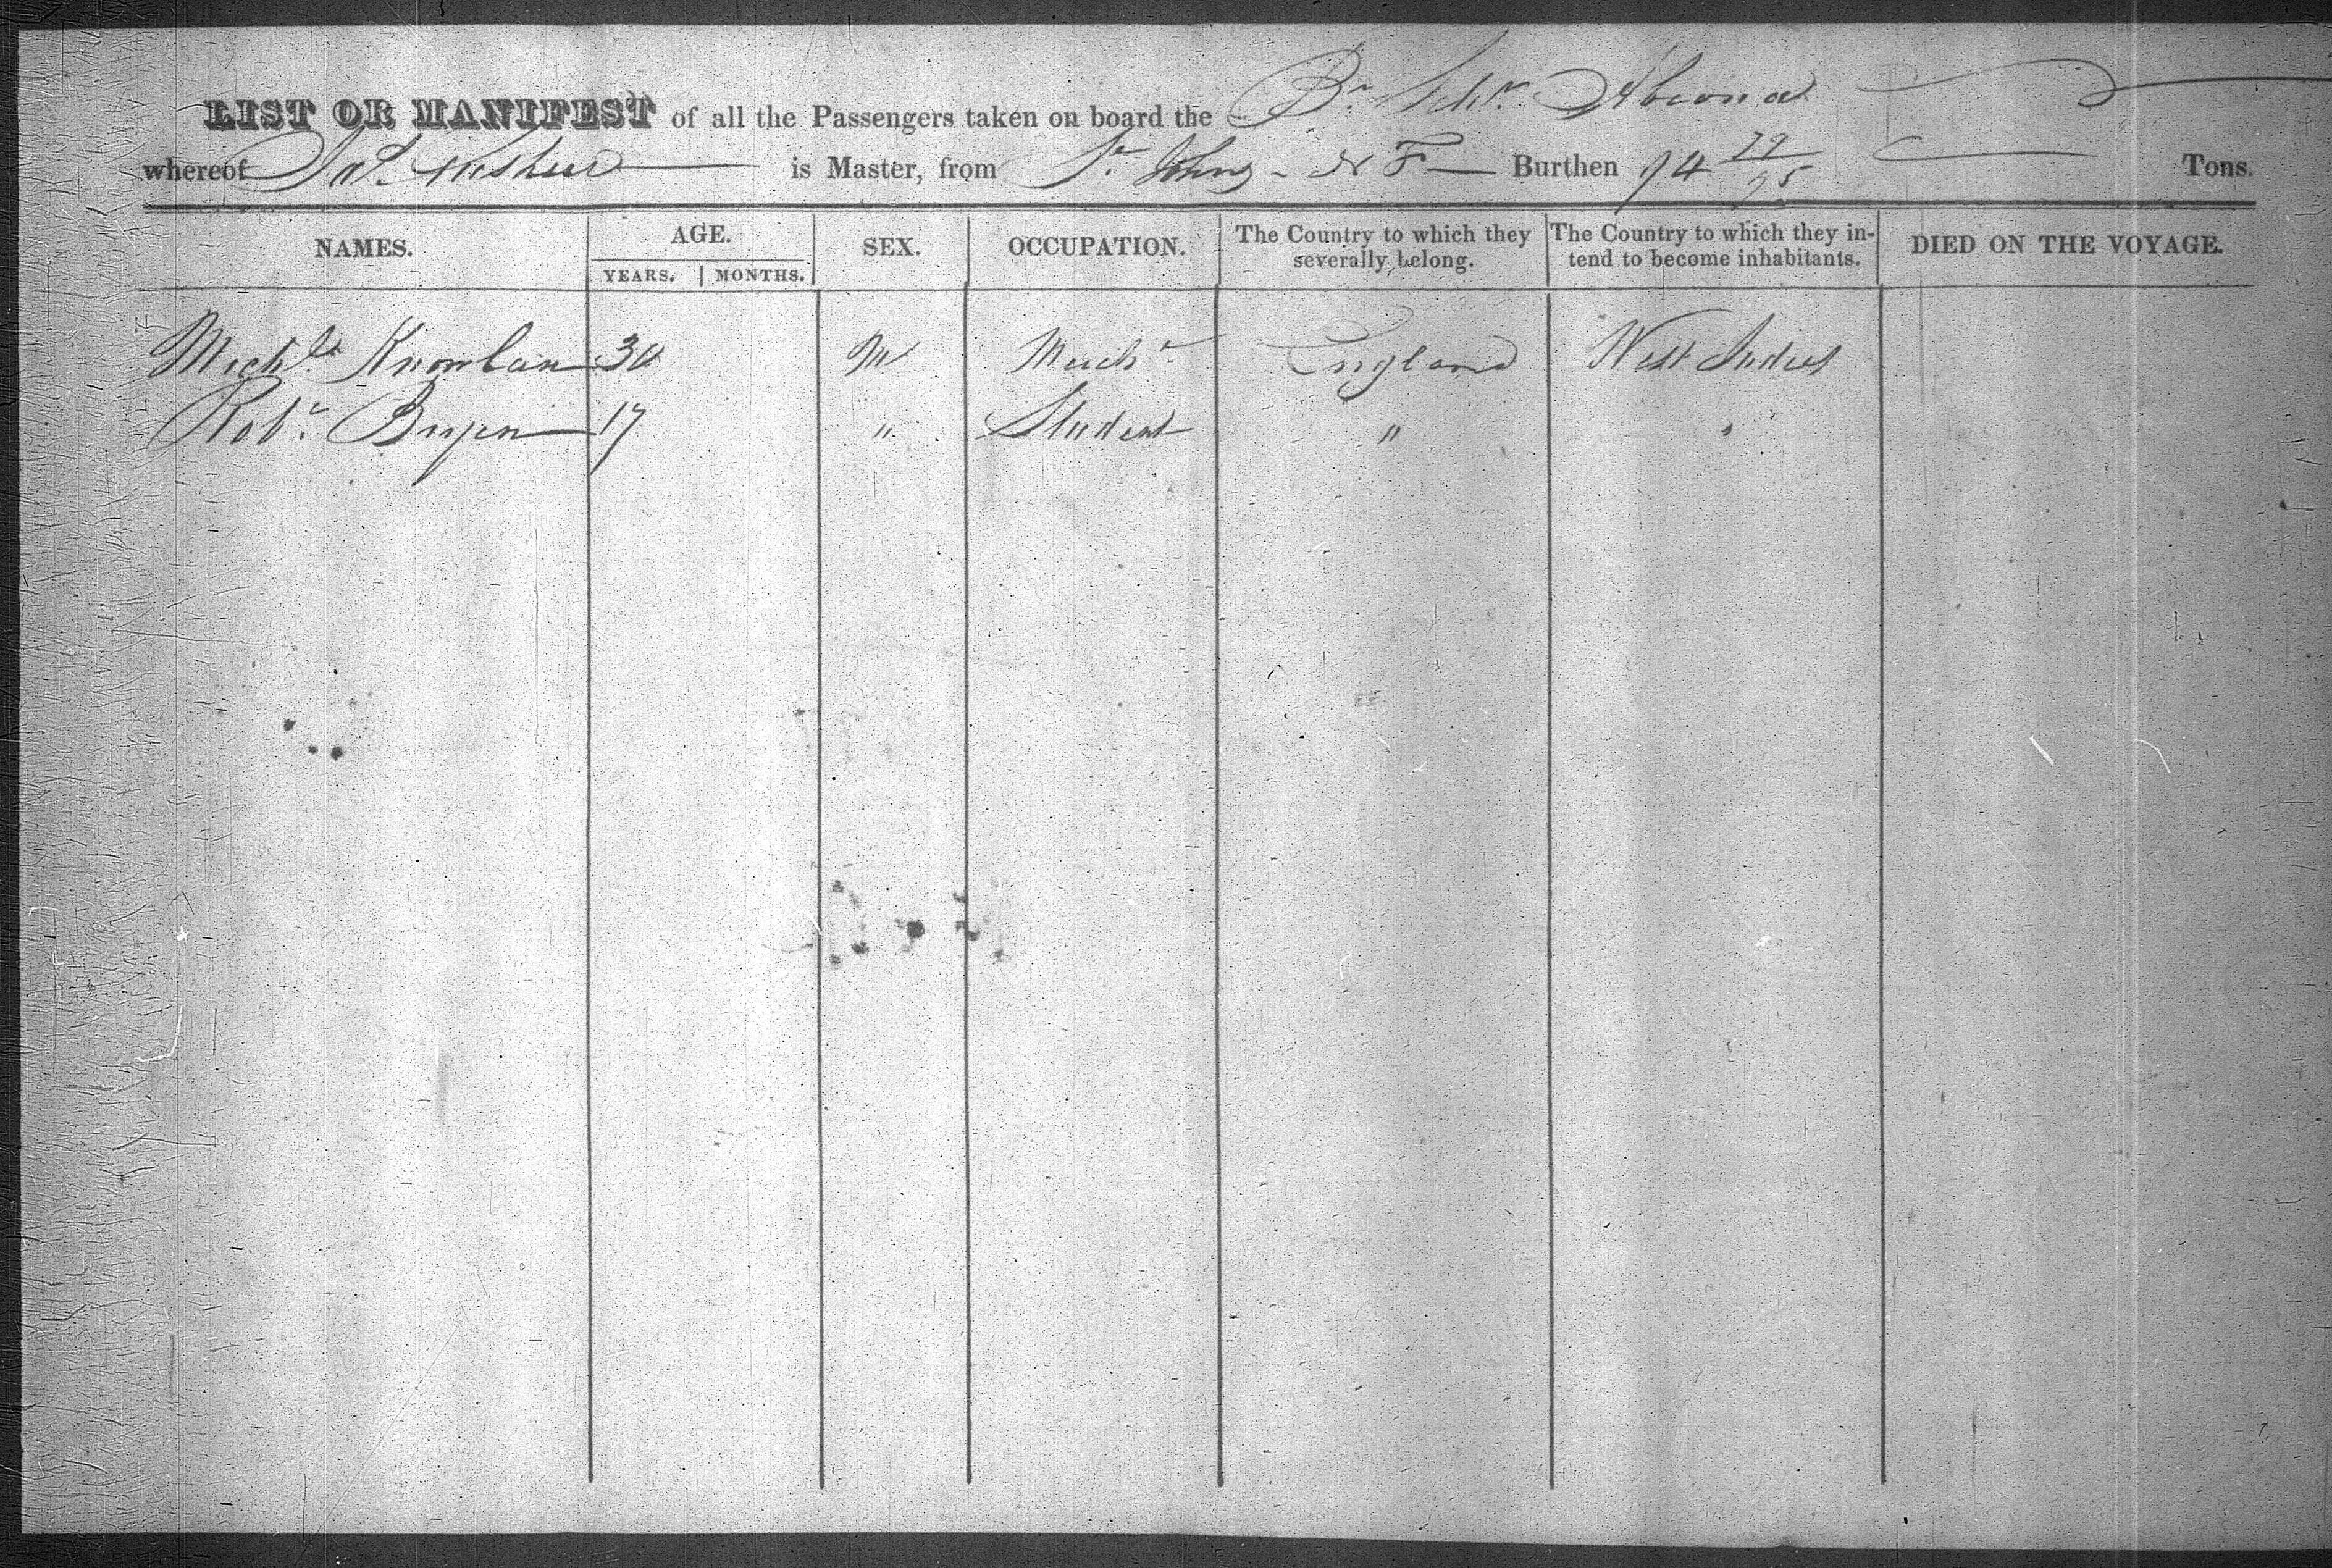 LIST OR MANIFEST of all the Passengers taken on board the Br. Schr.
whereof Jas. is Master, from St. Johns - N F Burthen 94 79/95 Tons.
NAMES. AGE. SEX. OCCUPATION. The Country to which they severally belong. The Country to which they in- tend to become inhabitants. DIED ON THE VOYAGE.
YEARS. MONTHS.
Michl. Knowlan 30 M Mercht England West Indies
Robt. Bryen 17 " Student " "